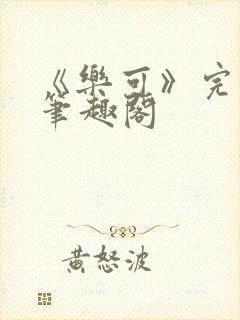 《樂可》完
筆趣閣
黃怒波